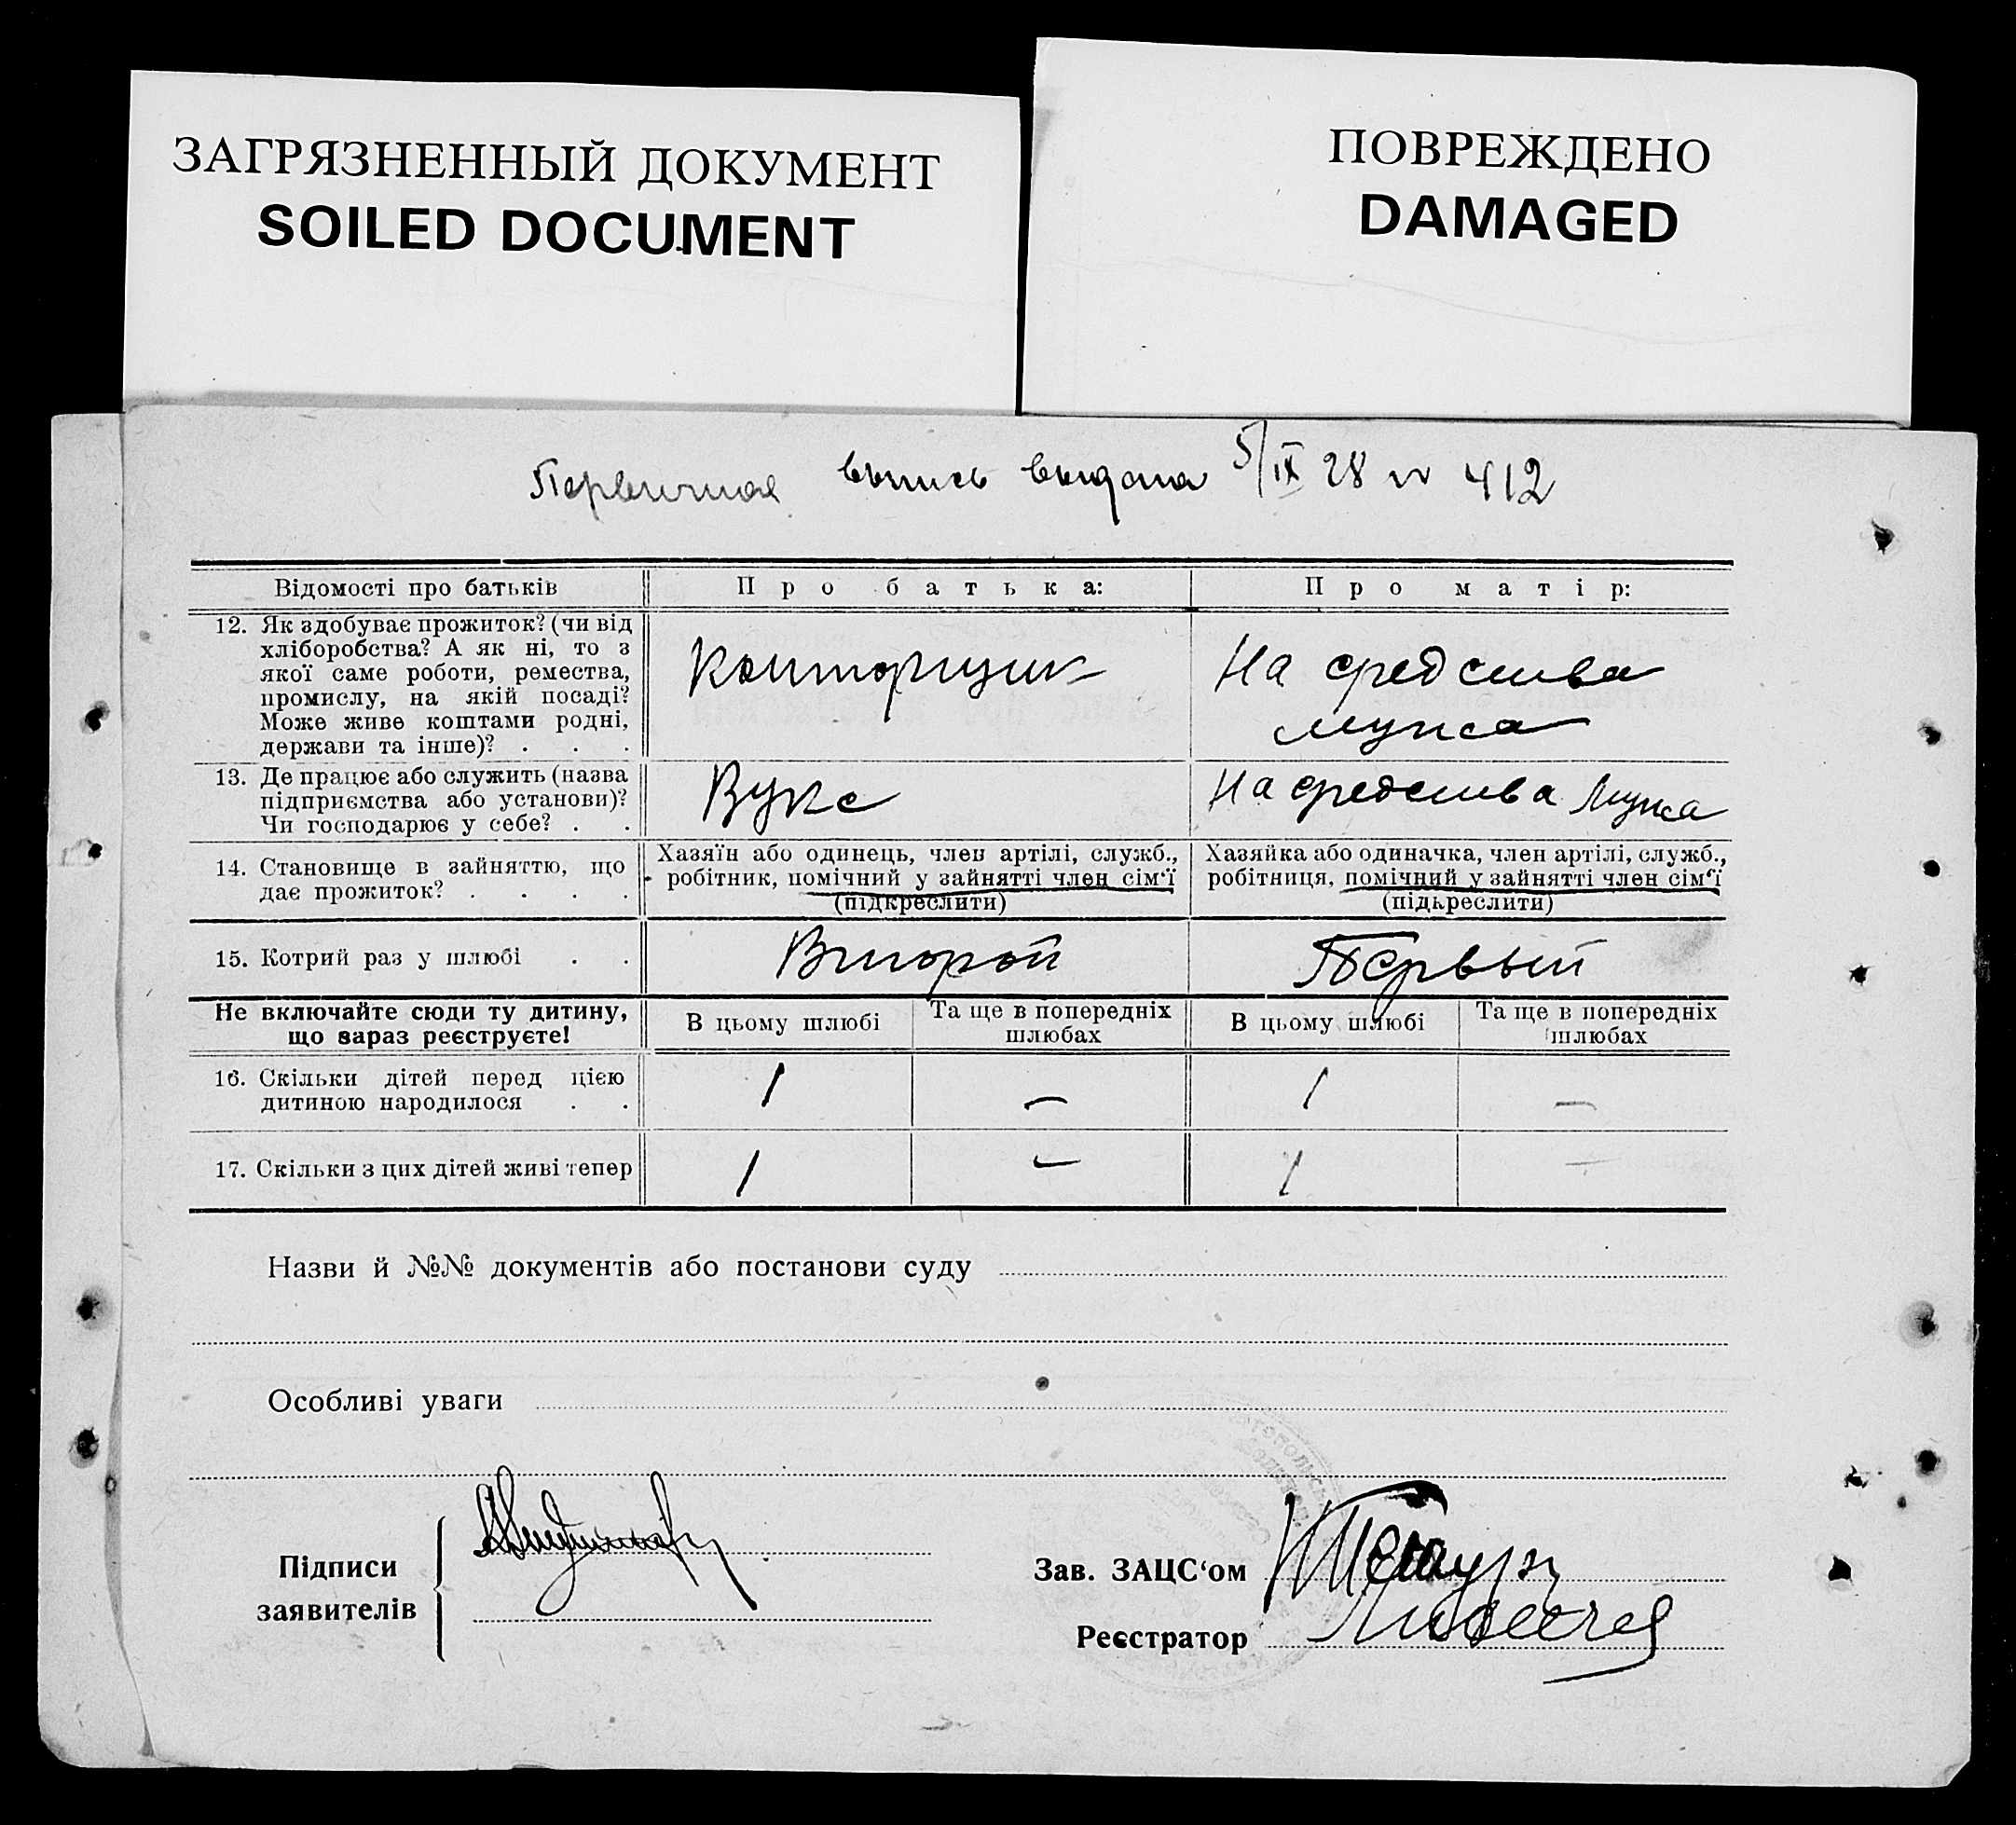 ЗАГРЯЗНЕННЫЙ ДОКУМЕНТ
SOILED DOCUMENT
ПОВРЕЖДЕНО
DAMAGED
Первичная выпись выдана 5/IX 28 № 412
Відомості про батьків
Про батька:
Про матір:
12. Як здобуває прожиток? (чи від
хліборобства? А як ні, то з
якої саме роботи, ремества,
промислу, на якій посаді?
Може живе коштами родні,
держави та інше)? . . .
Конторщик
На средства
мужа
13. Де працює або служить (назва
підприємства або установи)?
Чи господарює у себе? . .
Вукс
На средства мужа
14. Становище в зайняттю, що
дає прожиток? . . . .
Хазяїн або одинець, член артілі, служб.,
робітник, помічний у зайнятті член сім'ї
(підкреслити)
Хазяйка або одиначка, член артілі, служб.,
робітниця, помічний у зайнятті член сім'ї
(підкреслити)
15. Котрий раз у шлюбі . .
Второй
Первый
Не включайте сюди ту дитину,
що зараз реєструєте!
В цьому шлюбі
Та ще в попередніх
шлюбах
В цьому шлюбі
Та ще в попередніх
шлюбах
16. Скільки дітей перед цією
дитиною народилося . .
1
—
1
—
17. Скільки з цих дітей живі тепер
1
—
1
—
Назви й №№ документів або постанови суду
Особливі уваги
Підписи
заявителів
Зав. ЗАЦС'ом
Реєстратор